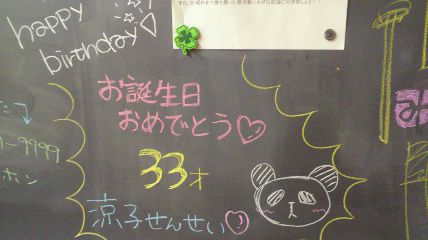 happy
birthday
お誕生日
おめでとう♡
33才
涼子せんせい♡
9999